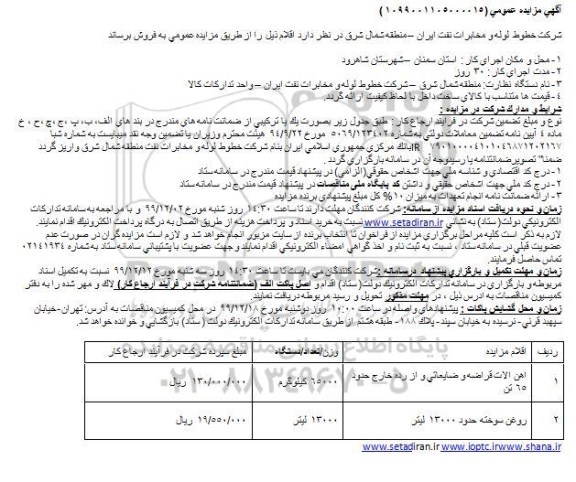 آگهي مزايده عمومي (۱۰۹۹۰۰۱۱۰۵۰۰۰۰۱۵)
شرکت خطوط لوله و مخابرات نفت ايران – منطقه شمال شرق در نظر دارد اقلام ذيل را از طريق مزايده عمومي به فروش برساند
۱- محل و مکان اجرای کار: استان سمنان – شهرستان شاهرود
۲- مدت اجرای کار: ۳۰ روز
۳- نام دستگاه نظارت: منطقه شمال شرق – شرکت خطوط لوله و مخابرات نفت ايران – واحد تدارکات کالا
۴- قيمت ها متناسب با کالای ساخت داخل با لحاظ کيفيت ارائه گردد.
شرايط و مدارک شرکت در مزايده :
نوع و مبلغ تضمين شرکت در فرايند ارجاع کار: طبق جدول زير بصورت يك يا ترکيبي از ضمانت نامه های مندرج در بند های الف، ب، پ، ج، چ، ح، خ
ماده ۴ آيين نامه تضمين معاملات دولتي به شماره ۱۲۳۴۰۲/ت۵۰۶۵۹ مورخ ۹۴/۹/۲۲ هيئت محترم وزيران يا تضمين وجه نقد ميبايست به شماره شبا
بانك مرکزي جمهوری اسلامی ايران بنام شرکت خطوط لوله و مخابرات نفت منطقه شمال شرق واريز گردد
ضمنا" تصويرضمانتنامه يا رسيدوجه آن در سامانه بارگزاري گردد.
۱- درج کد اقتصادی و شناسه ملي جهت اشخاص حقوقي(الزامی) در پيشنهاد قيمت مندرج در سامانه ستاد
۲- درج کد ملي جهت اشخاص حقيقي و داشتن کد پايگاه ملی مناقصات در پيشنهاد قيمت مندرج در سامانه ستاد
۳- ارائه ضمانت نامه انجام تعهدات به ميزان ۱۰% کل مبلغ پيشنهادي برنده مزايده
زمان و نحوه دريافت اسناد مزايده از سامانه: شرکت کنندگان مهلت دارند تا ساعت ۱۴:۳۰ روز شنبه مورخ ۹۹/۱۲/۰۲ و با مراجعه به سامانه تدارکات
الکترونيکي دولت(ستاد) به نشاني www.setadiran.ir نسبت به خريد اسناد و پرداخت هزينه از طريق اتصال به درگاه پرداخت الکترونيك اقدام نمايند.
لازم به ذکر است کليه مراحل برگزاری مزايده از فراخوان تا انتخاب برنده از سايت مزبور انجام خواهد شد و لازم است مزايده گران در صورت عدم
عضويت قبلي در سامانه ستاد، نسبت به ثبت نام و اخذ گواهي امضاء الکترونيکي اقدام نمايند و جهت عضويت با پشتيباني سامانه ستاد به شماره ۰۲۱۴۱۹۳۴
تماس حاصل فرمايند.
زمان و مهلت تکميل و بارگزاری پيشنهاد درسامانه: شرکت کنندگان مي بايست تا ساعت ۱۴:۳۰ روز سه شنبه مورخ ۹۹/۱۲/۱۲ نسبت به تکميل اسناد
مربوطه و بارگزاري در سامانه تدارکات الکترونيك دولت(ستاد) اقدام و اصل پاکت الف (ضمانتنامه شرکت در فرآيند ارجاع کار) لاك و مهر شده را به دفتر
کميسيون مناقصات به آدرس ذيل، در مهلت مذکور تحويل و رسيد مربوطه دريافت نمايند.
زمان و محل گشايش پاکات: پيشنهادهاي واصله دو ساعت ۱۰:۰۰ روز دوشنبه مورخ ۹۹/۱۲/۱۸ در محل کميسيون مناقصات به آدرس: تهران-خيابان
سپهبد قرني- نرسيده به خيابان سپند- پلاك ۱۸۸- طبقه هشتم از طريق سامانه تدارکات الکترونيك دولت(ستاد) بازگشايي و خوانده خواهد شد.
رديف اقلام مزايده وزن/تعداد/دستگاه مبلغ سپرده شرکت در فرآيند ارجاع کار
۱ اهن الات قراضه و ضايعاتي و از رده خارج حدود ۶۵ تن ۶۵۰۰۰ کيلوگرم ۱۳۰/۰۰۰/۰۰۰ ريال
۲ روغن سوخته حدود ۱۳۰۰۰ ليتر ۱۳۰۰۰ ليتر ۱۹/۵۵۰/۰۰۰ ريال
www.setadiran.ir www.ioptc.ir www.shana.ir
پايگاه اطلاع رسانی مناقصه و مزايده
۰۲۱-۸۸۳۴۹۶۷۰-۵